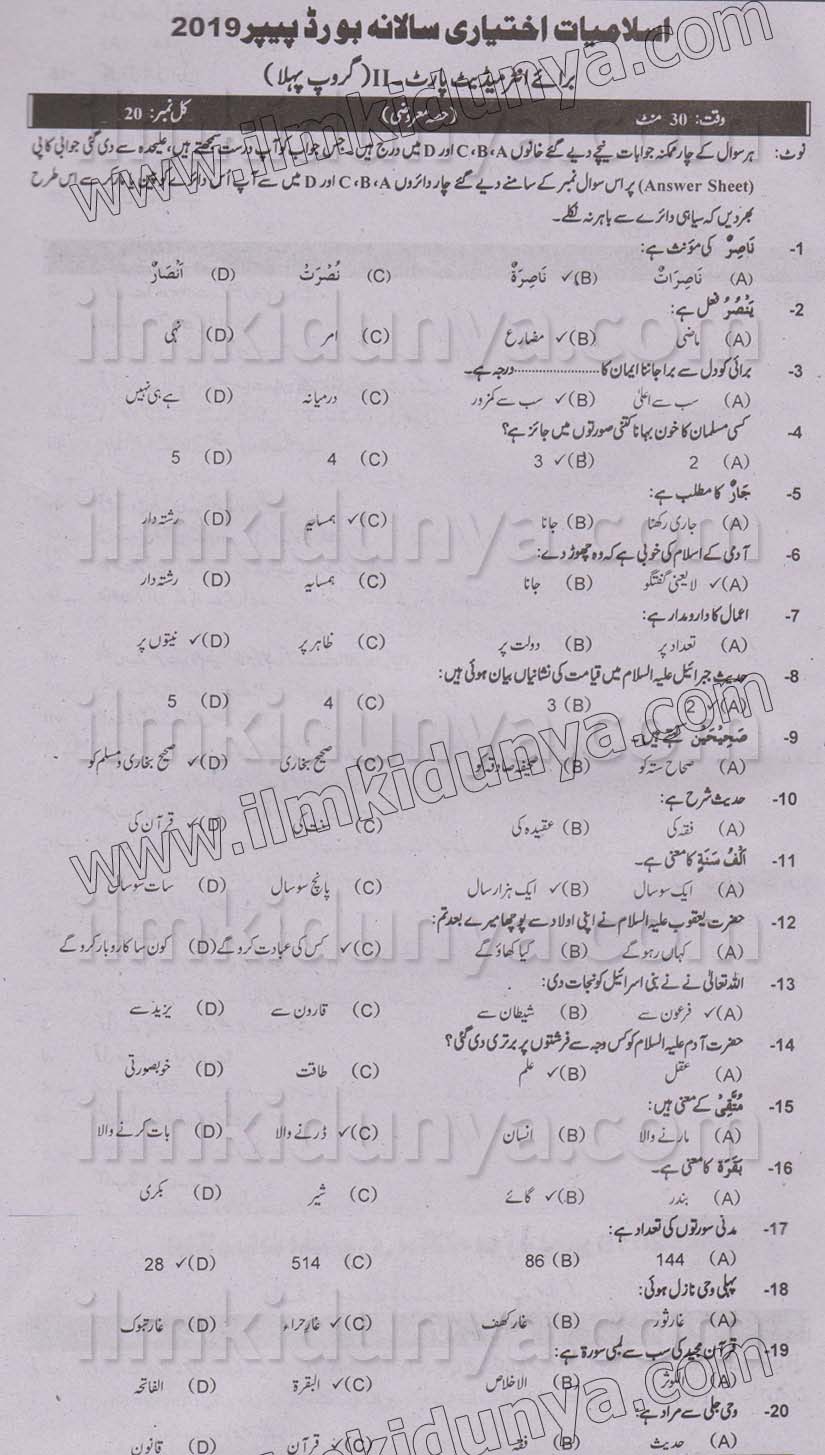 اسلامیات اختیاری سالانہ بورڈ پیپر 2019
برائے انٹرمیڈیٹ پارٹ ۔ II (گروپ پہلا)
وقت: 30 منٹ (حصہ معروضی) کل نمبر: 20
نوٹ: ہر سوال کے چار ممکنہ جوابات نیچے دیے گئے خانوں C،B،A اور D میں درج ہیں۔ جس جواب کو آپ درست سمجھتے ہیں، علیحدہ سے دی گئی جوابی کاپی
(Answer Sheet) پر اس سوال نمبر کے سامنے دیے گئے چار دائروں C،B،A اور D میں سے آپ اُس دائرے کو پین یا مارکر سے اِس طرح
بھر دیں کہ سیاہی دائرے سے باہر نہ نکلے۔
1- نَاصِرٌ کی مؤنث ہے:
(A) نَاصِرَاتٌ (B)✓ نَاصِرَةٌ (C) نُصْرَتْ (D) اَنْصَارٌ
2- یَنْصُرُ فعل ہے:
(A) ماضی (B)✓ مضارع (C) امر (D) نہی
3- برائی کو دل سے برا جاننا ایمان کا ........................ درجہ ہے۔
(A) سب سے اعلیٰ (B)✓ سب سے کمزور (C) درمیانہ (D) ہے ہی نہیں
4- کسی مسلمان کا خون بہانا کتنی صورتوں میں جائز ہے؟
(A) 2 (B)✓ 3 (C) 4 (D) 5
5- جَارٌ کا مطلب ہے:
(A) جاری رکھنا (B) جانا (C)✓ ہمسایہ (D) رشتہ دار
6- آدمی کے اسلام کی خوبی ہے کہ وہ چھوڑ دے:
(A)✓ لایعنی گفتگو (B) جانا (C) ہمسایہ (D) رشتہ دار
7- اعمال کا دارومدار ہے:
(A) تعداد پر (B) دولت پر (C) ظاہر پر (D)✓ نیتوں پر
8- حدیث جبرائیل علیہ السلام میں قیامت کی نشانیاں بیان ہوئی ہیں:
(A)✓ 2 (B) 3 (C) 4 (D) 5
9- صَحِیْحَیْن کہتے ہیں۔
(A) صحاح ستہ کو (B) صحیفہ صادقہ کو (C) صحیح بخاری (D)✓ صحیح بخاری و مسلم کو
10- حدیث شرح ہے:
(A) فقہ کی (B) عقیدہ کی (C) سنت کی (D)✓ قرآن کی
11- اَلْفُ سَنَةٍ کا معنی ہے۔
(A) ایک سو سال (B)✓ ایک ہزار سال (C) پانچ سو سال (D) سات سو سال
12- حضرت یعقوب علیہ السلام نے اپنی اولاد سے پوچھا میرے بعد تم:
(A) کہاں رہو گے (B) کیا کھاؤ گے (C)✓ کس کی عبادت کرو گے (D) کون سا کاروبار کرو گے
13- اللہ تعالیٰ نے نے بنی اسرائیل کو نجات دی:
(A)✓ فرعون سے (B) شیطان سے (C) قارون سے (D) یزید سے
14- حضرت آدم علیہ السلام کو کس وجہ سے فرشتوں پر برتری دی گئی؟
(A) عقل (B)✓ علم (C) طاقت (D) خوبصورتی
15- مُتَّقِیْ کے معنی ہیں:
(A) مارنے والا (B) انسان (C)✓ ڈرنے والا (D) بات کرنے والا
16- بَقَرَة کا معنی ہے۔
(A) بندر (B)✓ گائے (C) شیر (D) بکری
17- مدنی سورتوں کی تعداد ہے:
(A) 144 (B) 86 (C) 514 (D)✓ 28
18- پہلی وحی نازل ہوئی:
(A) غار ثور (B) غار کھف (C)✓ غار حراء (D) غار تبوک
19- قرآن مجید کی سب سے لمبی سورۃ ہے:
(A) الکوثر (B) الاخلاص (C)✓ البقرۃ (D) الفاتحہ
20- وحی جلی سے مراد ہے:
(A) حدیث (B) فقہ (C)✓ قرآن (D) قانون
www.ilmkidunya.com
ilmkidunya.com
ilmkidunya.com
ilmkidunya.com
ilmkidunya.com
www.ilmkidunya.com
ilmkidunya.com
ilmkidunya.com
ilmkidunya.com
www.ilmkidunya.com